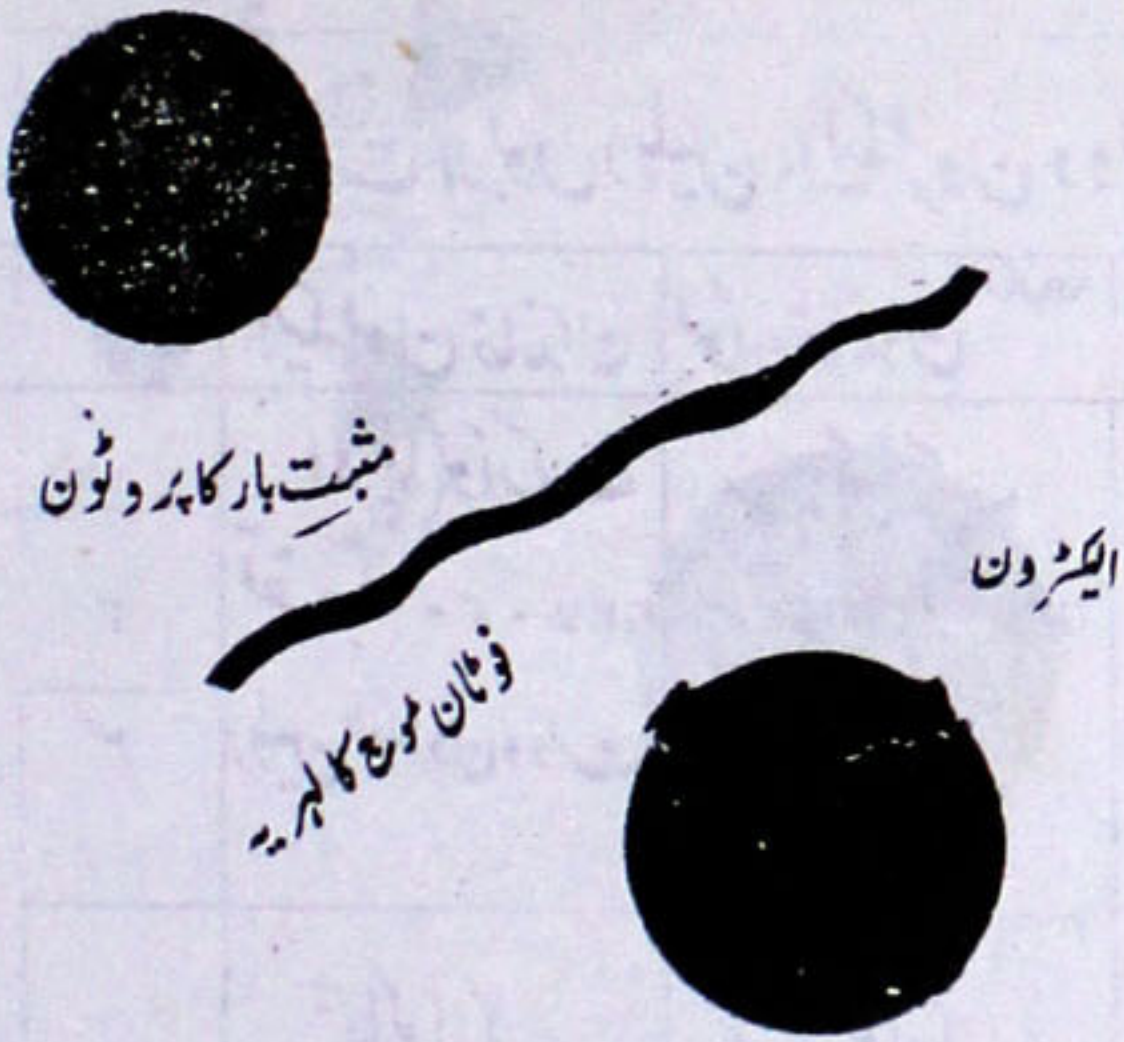 مثبتِ بار کا پروٹون
الیکٹرون
فوٹان موج کا لہریہ